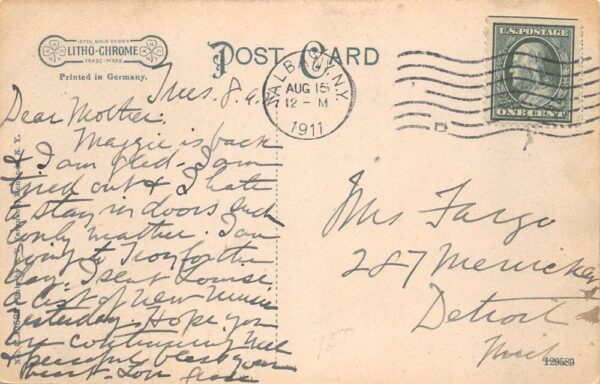 LITHO-CHROME
TRADE-MARK
Printed in Germany.
POST CARD
ALBANY, N.Y.
AUG 15
12-M
1911
U.S. POSTAGE
ONE CENT
Tues. 8 a.
Dear Mother
Maggie is back
& I am glad. I am
tired out & I hate
to stay in doors such
lovely weather. I am
going to Troy for the
day. I sent Louise
a list of new music
yesterday. Hope you
are continuing well
&
heart. Love
Mrs Fargo
287 Merrick
Detroit
Mich
129589